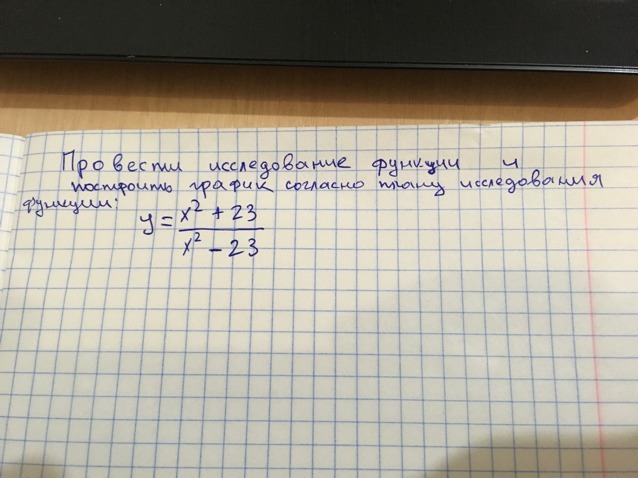 Провести исследование функции и
построить график согласно плану исследования
функции:
y = x² + 23
x² - 23